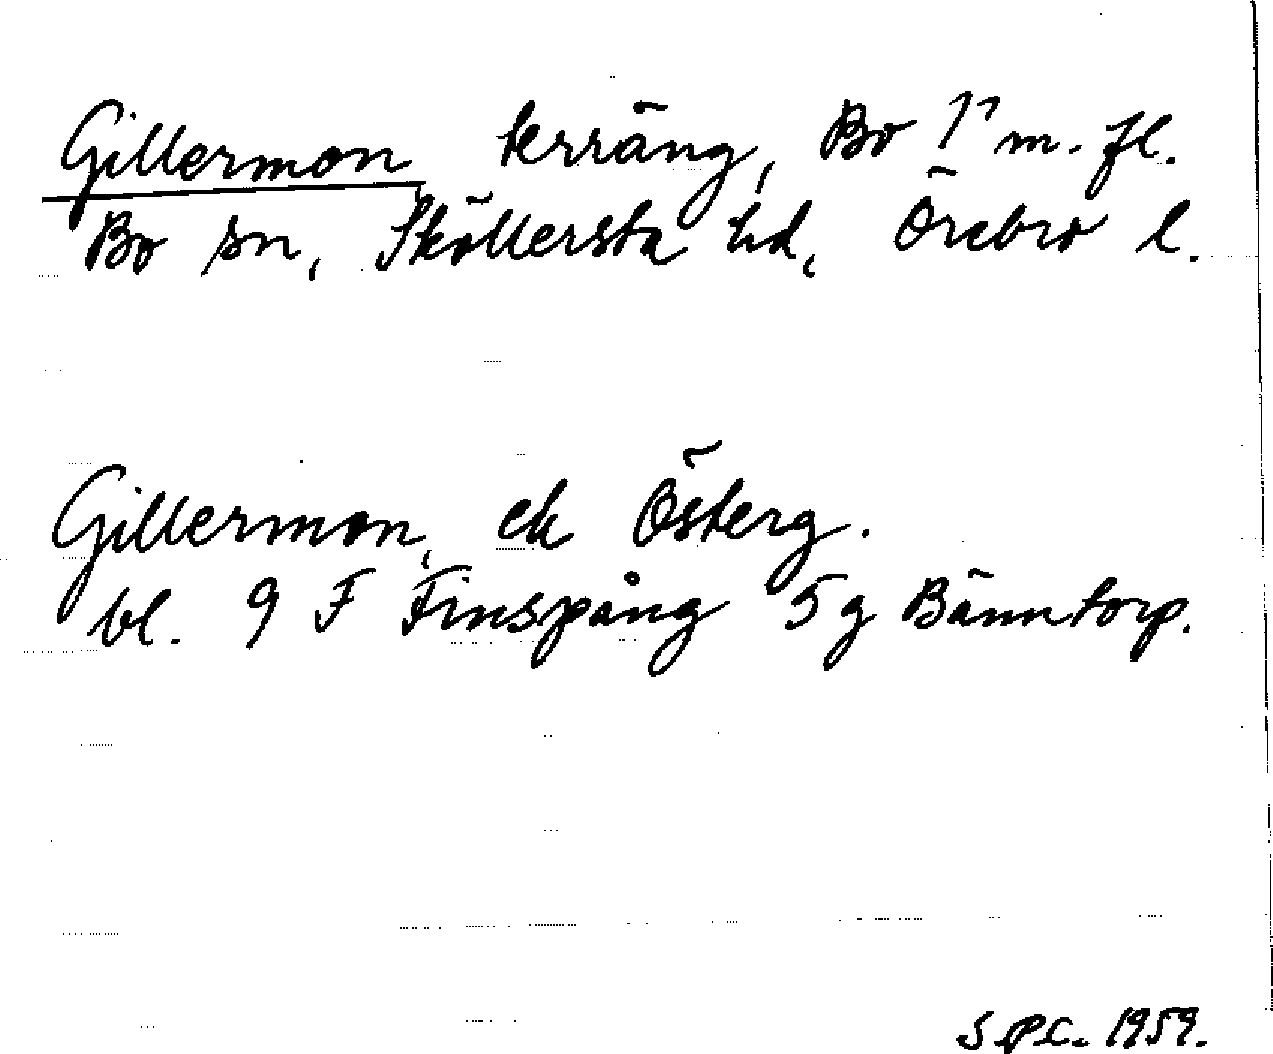 Gillermon terräng, Bo 1¹¹ m. fl.
Bo sn, Sköllersta hd, Örebro l.
Gillermon, ek Österg.
bl. 9 F Finspång 5g Bänntorp.
S.P.C. 1959.